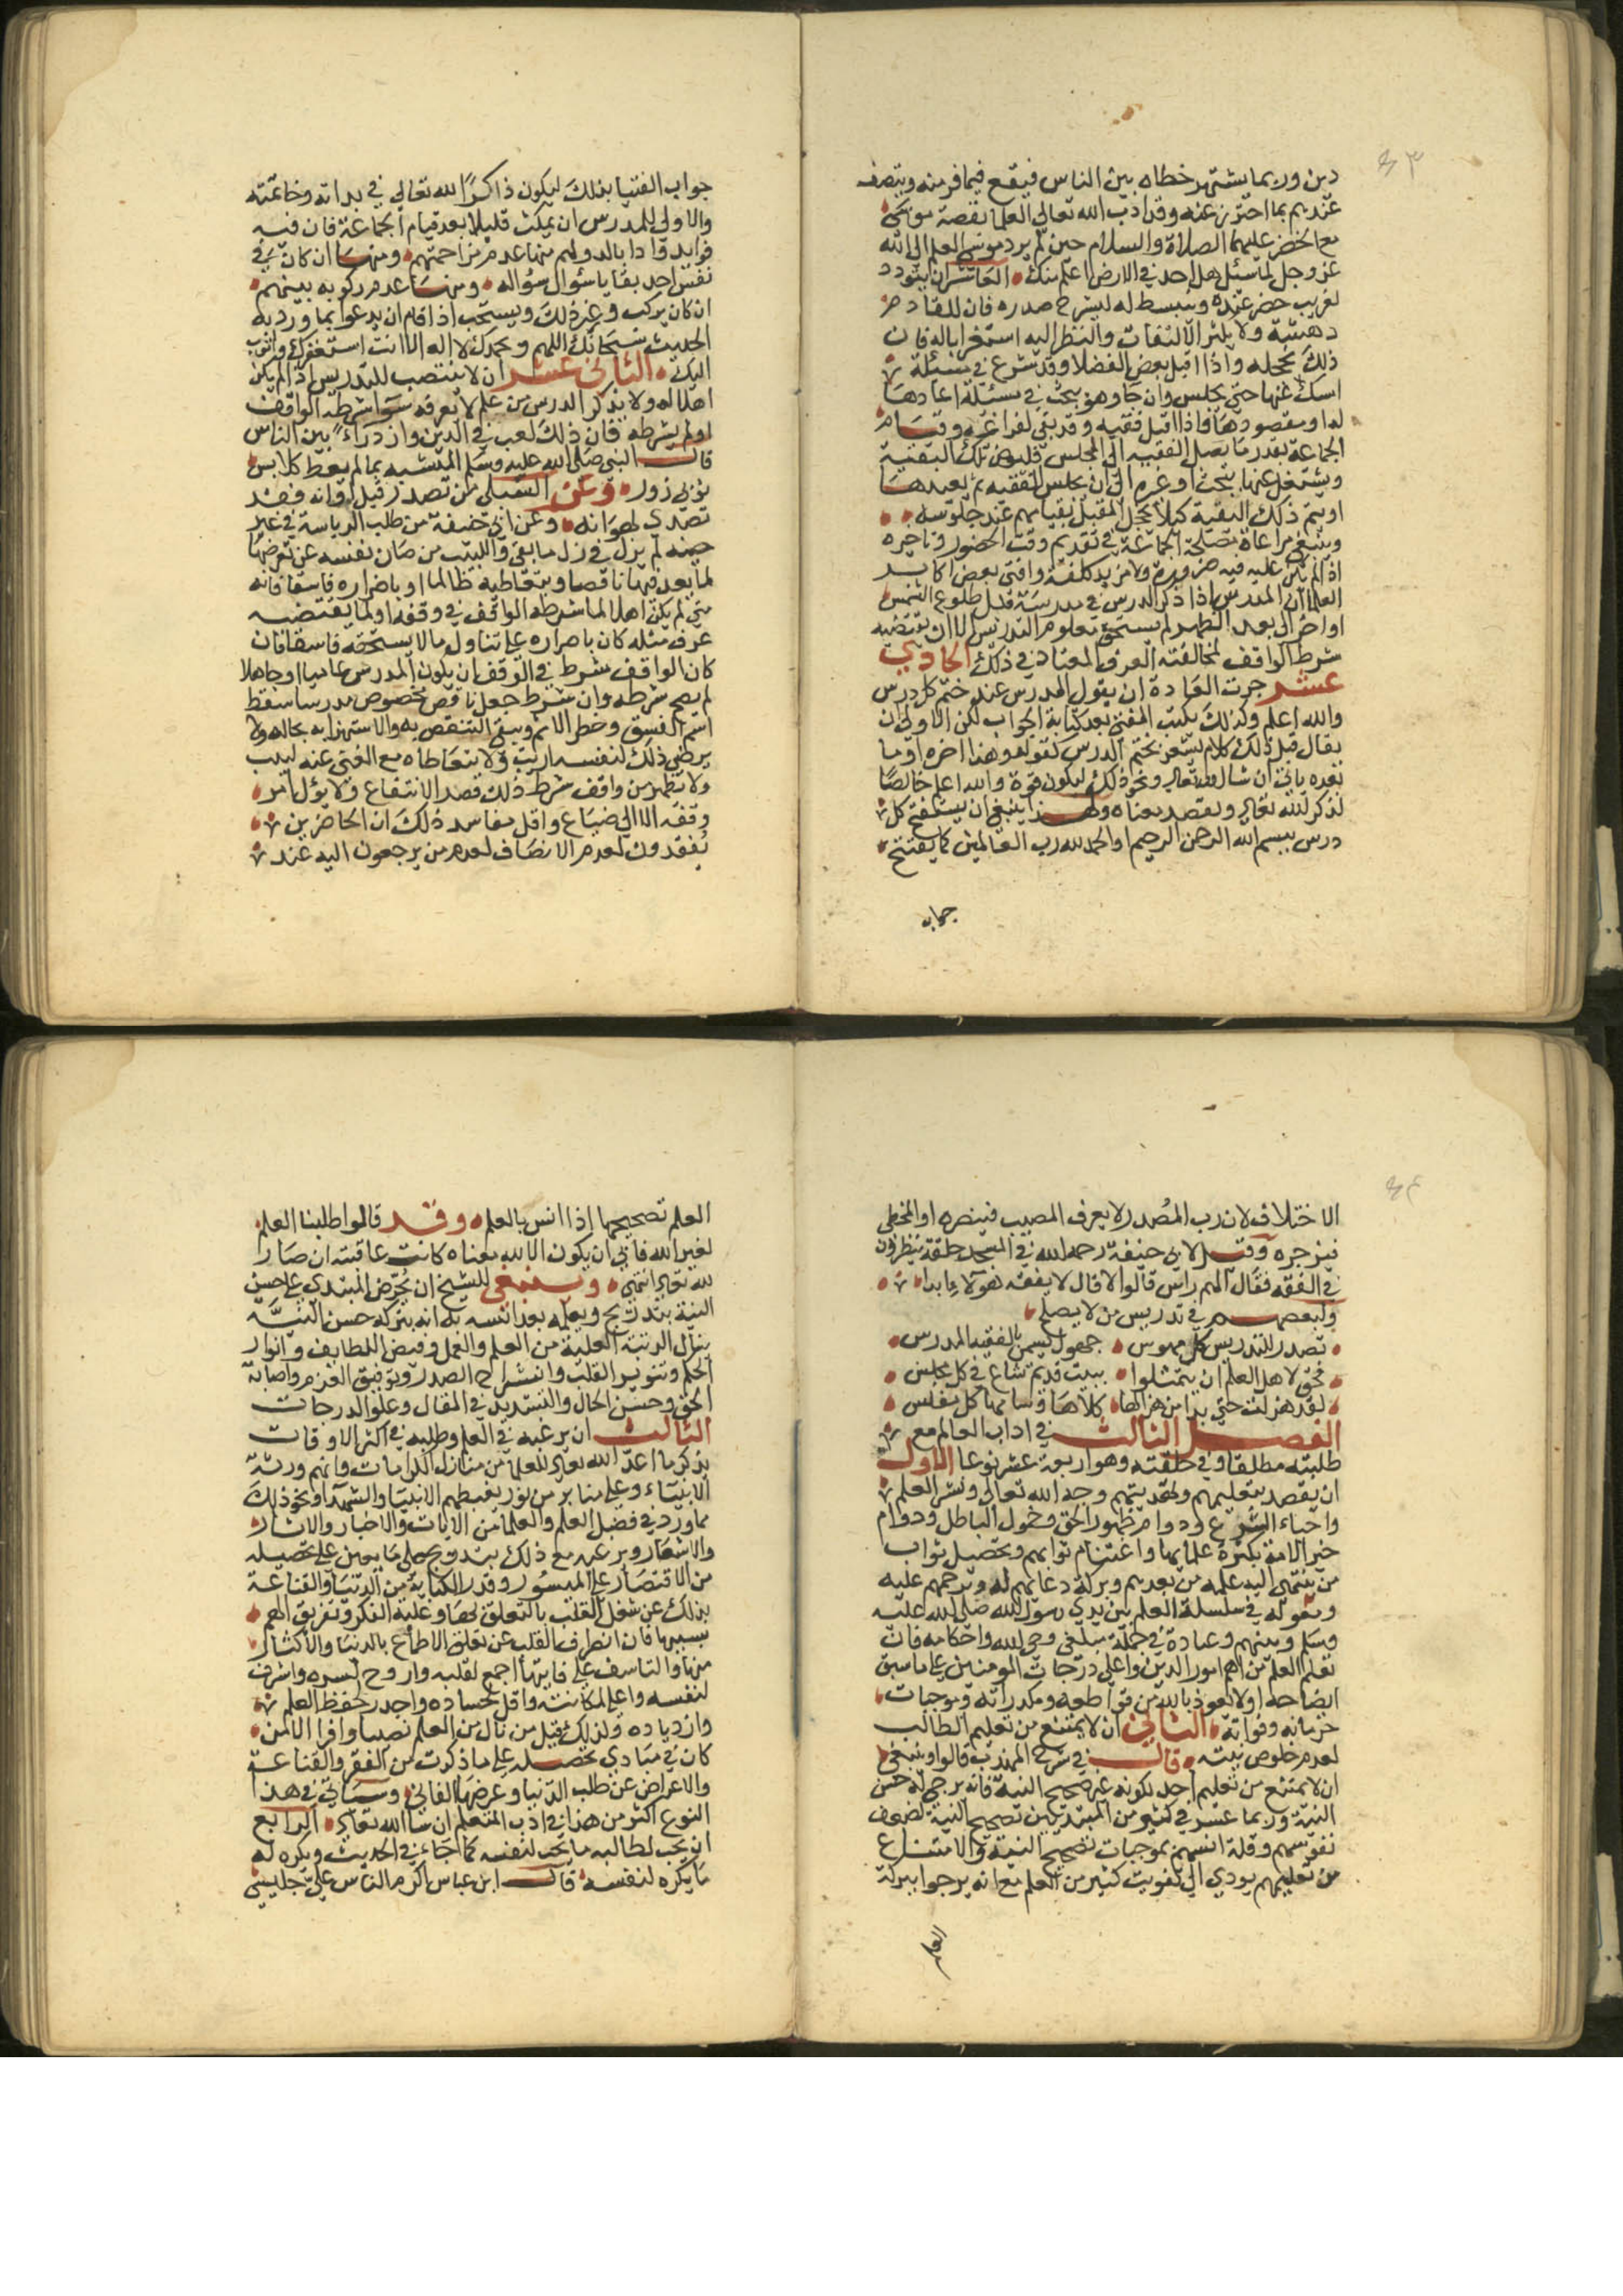 ٤٣
دين وربما يشتهر خطاه بين الناس فيقع فيما فر منه ويتصف
عندهم بما احترز عنه وقد ادب الله تعالى العلما بقصة موسى
مع الخضر عليهما الصلاة والسلام حين لم يرد موسى العلم الى الله
عز وجل لما سئل هل احد في الارض اعلم منك العاشر ان يتودد
لغريب حضر عنده وينبسط له ليشرح صدره فان للقادم
دهشة ولا يكثر الالتفات والنظر اليه استغرابا له فان
ذلك يخجله واذا اقبل بعض الفضلا وقد شرع في مسئلة
امسك عنها حتى يجلس وان جا وهو يبحث في مسئلة اعادها
له او مقصودها واذا اقبل فقيه وقد بقي لفراغه وقيام
الجماعة بقدر ما يصل الفقيه الى المجلس فليؤخر تلك البقية
ويشتغل عنها ببحث او غيره الى ان يجلس الفقيه ثم يعيدها
او يتم ذلك البقية كيلا يخجل المقبل بقيامهم عند جلوسه
وينبغي مراعاة مصلحة الجماعة في تقديم وقت الحضور وتاخيره
اذا لم يكن عليه فيه ضرورة ولا مزيد كلفة وافتى بعض اكابر
العلما ان المدرس اذا ذكر الدرس في مدرسة قبل طلوع الشمس
او اخر الى بعد الظهر لم يستحق معلوم التدريس الا ان يقتضيه
شرط الواقف لمخالفته العرف المعتاد في ذلك الحادي
عشر جرت العادة ان يقول المدرس عند ختم كل درس
والله اعلم وكذلك يكتب المفتي بعد كتابة الجواب لكن الاولى ان
يقال قبل ذلك كلام يشعر بختم الدرس كقوله وهذا اخره او ما
بعده ياتي ان شا الله تعالى ونحو ذلك ليكون قوله والله اعلم خالصا
لذكر الله تعالى ولقصد معناه ولهذا ينبغي ان يستفتح كل
درس ببسم الله الرحمن الرحيم او الحمد لله رب العالمين كما يفتتح
جواب
جواب الفتيا بذلك ليكون ذاكرا لله تعالى في بداته وخاتمته
والاولى للمدرس ان يمكث قليلا بعد قيام الجماعة فان فيه
فوايد وادابا له ولهم منها عدم مزاحمتهم ومنها ان كان في
نفس احد بقايا سؤال سؤاله ومنها عدم ركوبه بينهم
ان كان يركب وغير ذلك ويستحب اذا قام ان يدعوا بما ورد به
الحديث سبحانك اللهم وبحمدك لا اله الا انت استغفرك واتوب
اليك الثاني عشر ان لا ينتصب للتدريس اذا لم يكن
اهلا له ولا يذكر الدرس من علم لا يعرفه سوا شرطه الواقف
او لم يشرطه فان ذلك لعب في الدين وازدراء بين الناس
قال النبي صلى الله عليه وسلم المتشبه بما لم يعط كلابس
ثوبي زور وعن الشبلي من تصدر قبل اوانه فقد
تصدى لهوانه وعن ابي حنيفة من طلب الرياسة في غير
حينه لم يزل في ذل ما بقي واللبيب من صان نفسه عن تعرضها
لما يعد فيها ناقصا وبتعاطيه ظالما او باصراره فاسقا فانه
متى لم يكن اهلا لما شرطه الواقف في وقفه او لما يقتضيه
عرف مثله كان باصراره على تناول ما لا يستحقه فاسقا فان
كان الواقف شرط في الوقف ان يكون المدرس عاميا او جاهلا
لم يصح شرطه وان شرط جعل ناقص مخصوص مدرسا سقط
اسم الفسق وخطر الاثم وبقي التنقص به والاستهزا به بحاله ولا
يرضى ذلك لنفسه اريب ولا يتعاطاه مع الغنى عنه لبيب
ولا تظهر من واقف شرط ذلك قصد الانتفاع ولا يؤل امر
وقفه الا الى ضياع واقل مفاسد ذلك ان الحاضرين
يفقدون لعدم الانصاف لعدم من يرجعون اليه عند
٤٤
الاختلاف لان رب المصدر لا يعرف المصيب فينصره او المخطي
فيزجره وقيل لابي حنيفة رحمه الله في المسجد حلقة ينظرون
في الفقه فقال الهم راس قالوا لا قال لا يفقه هؤلاء ابدا
ولبعضهم في تدريس من لا يصلح
تصدر للتدريس كل مهوس جهول يسمى بالفقيه المدرس
فحق لاهل العلم ان يتمثلوا ببيت قديم شاع في كل مجلس
لقد هزلت حتى بدا من هزالها كلاها وسامها كل مفلس
الفصل الثالث في اداب العالم مع
طلبته مطلقا وفي حلقته وهو اربعة عشر نوعا الاول
ان يقصد بتعليمهم وتهذيبهم وجه الله تعالى ونشر العلم
واحياء الشرع ودوام ظهور الحق وخمول الباطل ودوام
خير الامة بكثرة علمايها واغتنام ثوابهم وتحصيل ثواب
من ينتهي اليه علمه من بعدهم وبركة دعائهم له وترحمهم عليه
ودخوله في سلسلة العلم بين يدي رسول الله صلى الله عليه
وسلم وبينهم وعداده في جملة مبلغي وحي الله واحكامه فان
تعلم العلم من اهم امور الدين واعلى درجات المومنين على ما سبق
ايضاحه اولا نعوذ بالله من قواطعه ومكدراته وموجبات
حرمانه وفواته الثاني ان لا يمتنع من تعليم الطالب
لعدم خلوص نيته قال في شرح المهذب قالوا وينبغي
ان لا يمتنع من تعليم احد لكونه غير صحيح النية فانه يرجى له حسن
النية وربما عسر في كثير من المبتديين تصحيح النية لضعف
نفوسهم وقلة انسهم بموجبات تصحيح النية والامتناع
من تعليمهم يودي الى تفويت كثير من العلم مع انه يرجوا ببركة
العلم
العلم تصحيحها اذا انس بالعلم وقد قالوا طلبنا العلم
لغير الله فابى ان يكون الا لله معناه كانت عاقبته ان صار
لله تعالى انتهى وينبغي للشيخ ان يحرض المبتدي على حسن
النية بتدريج ويعلمه بعد انسه به انه ببركة حسن النية
ينال الرتبة العلية من العلم والعمل وفيض اللطايف وانوار
الحكم وتنوير القلب وانشراح الصدر وتوفيق العزم واصابة
الحق وحسن الحال والتسديد في المقال وعلو الدرجات
الثالث ان يرغبه في العلم وطلبه في اكثر الاوقات
بذكر ما اعد الله تعالى للعلما من منازل الكرامات وانهم ورثة
الانبياء وعلى منابر من نور يغبطهم الانبيا والشهدا ونحو ذلك
مما ورد في فضل العلم والعلما من الايات والاخبار والاثار
والاشعار ويرغبه مع ذلك بتدريج على ما يعين على تحصيله
من الاقتصار على الميسور وقدر الكفاية من الدنيا والقناعة
بذلك عن شغل القلب بالتعلق بها وغلبة الفكر وتفريق الهم
بسببها فان انصراف القلب عن تعلق الاطماع بالدنيا والاكثار
منها والتاسف على فايتها اجمع لقلبه واروح لسره واشرف
لنفسه واعلى لمكانته واقل لحساده واجدر لحفظ العلم
وازدياده ولذلك قيل من نال من العلم نصيبا وافرا الا من
كان في مبادي تحصيله على ما ذكرت من الفقر والقناعة
والاعراض عن طلب الدنيا وعرضها الفاني وسياتي في هذا
النوع اكثر من هذا في ادب المتعلم ان شا الله تعالى الرابع
ان يحب لطالبه ما يحب لنفسه كما جاء في الحديث ويكره له
ما يكره لنفسه قال ابن عباس اكرم الناس علي جليسي